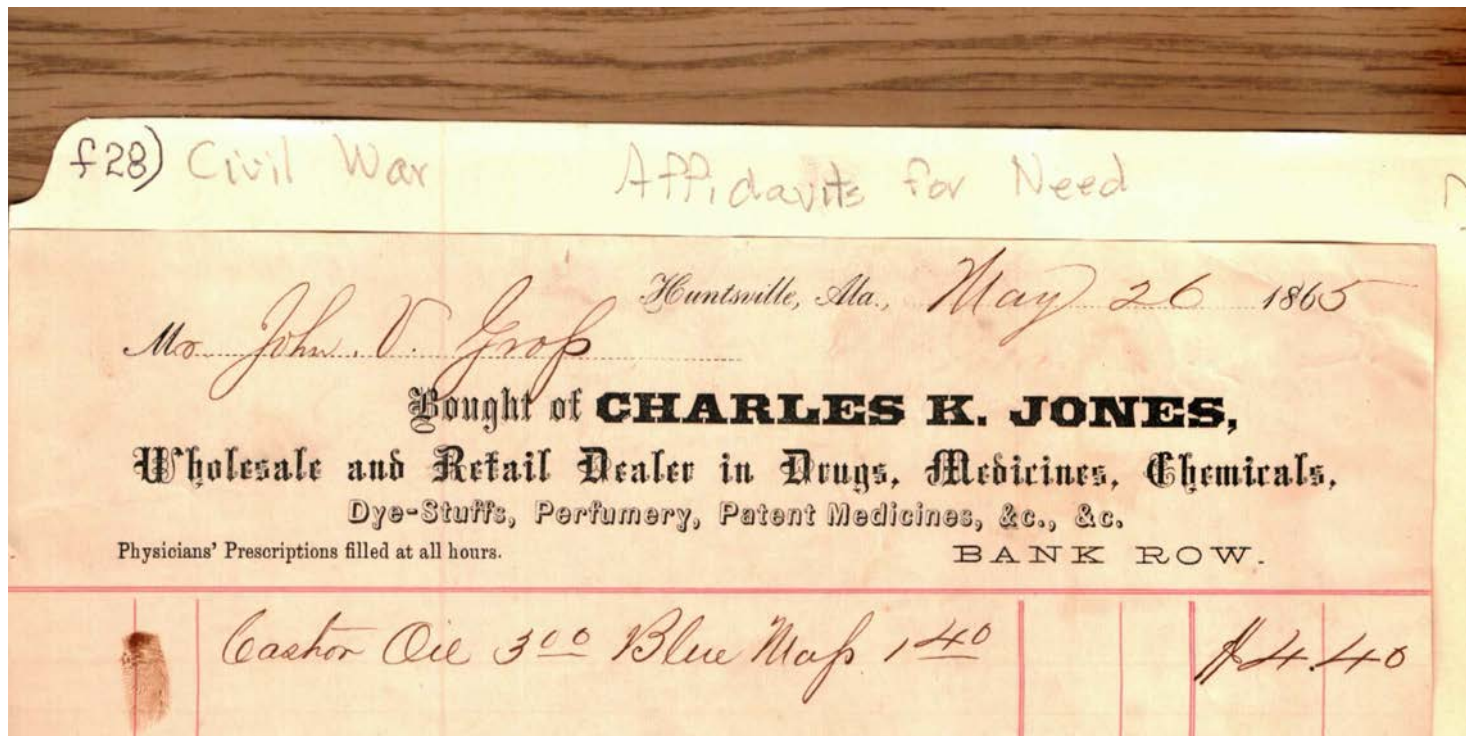 f28) Civil War Affidavits for Need
Huntsville, Ala., May 26 1865
Mr John. V. Groſs
Bought of CHARLES K. JONES,
Wholesale and Retail Dealer in Drugs, Medicines, Chemicals,
Dye-Stuffs, Perfumery, Patent Medicines, &c., &c.
Physicians' Prescriptions filled at all hours. BANK ROW.
Castor Oil 3 00 Blue Maſs 1 40 $4.40